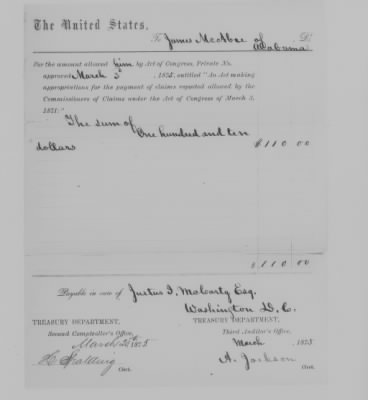 The United States,
To James McAbee of Alabama, Dr.
For the amount allowed him, by Act of Congress, Private No.
approved March 3d, 1875, entitled "An Act making
appropriations for the payment of claims reported allowed by the
Commissioners of Claims under the Act of Congress of March 3,
1871:"
The sum of
One hundred and ten
dollars $110 00
$110 00
Payable in care of Justus I. McCarty Esq.
Washington D.C.
TREASURY DEPARTMENT, TREASURY DEPARTMENT,
Second Comptroller's Office, Third Auditor's Office,
March 1875 March , 1875
Spalding A. Jackson
Clerk. Clerk.